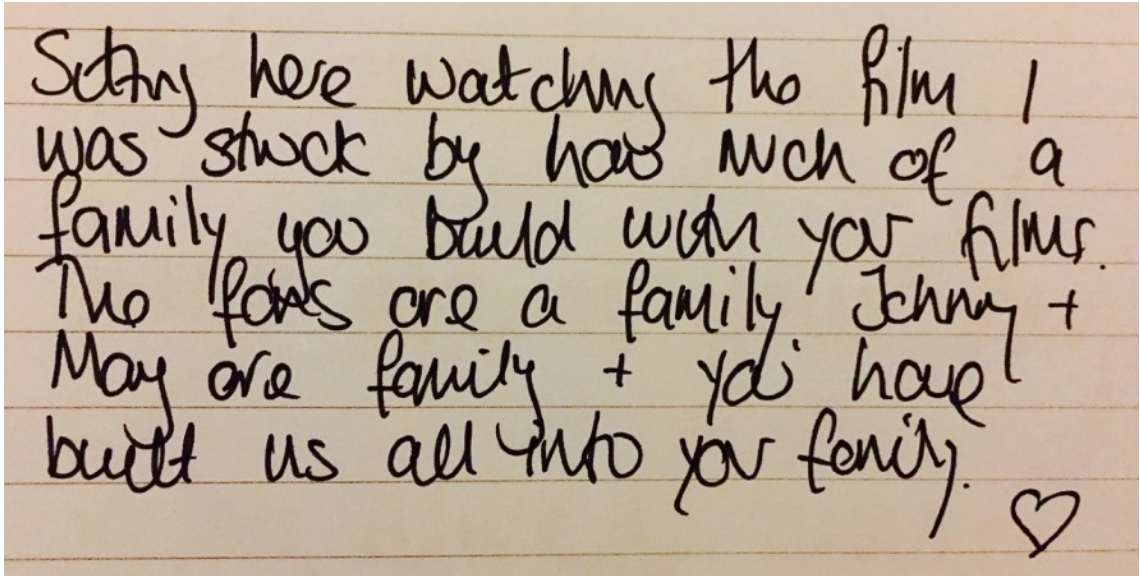 Sitting here watching the film I
was stuck by how much of a
family you build with your films.
The fores are a family Johnny +
May are family + you have
built us all into your family.
♡